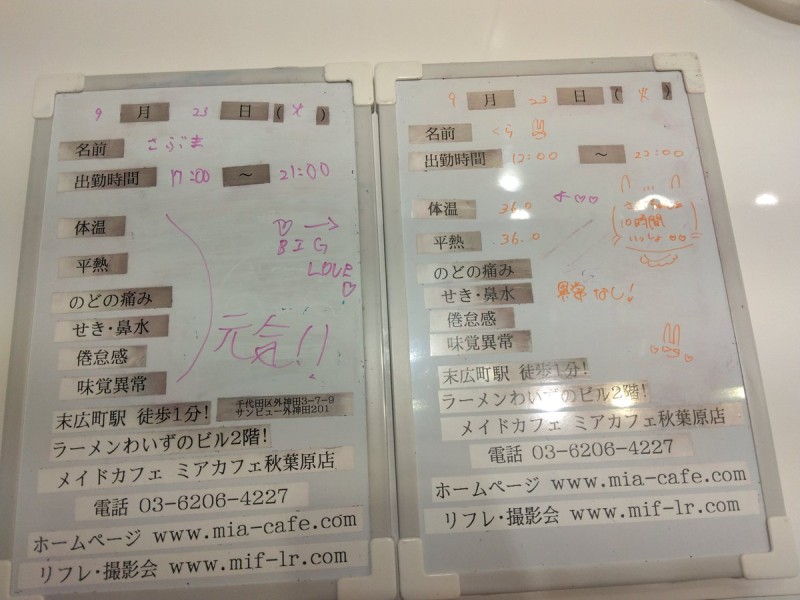 9 月 23 日 (火)
名前 さぶま
出勤時間 17:00 ～ 21:00
体温
平熱
BIG
LOVE
のどの痛み
せき・鼻水
倦怠感
味覚異常
元気!!
末広町駅 徒歩1分!
千代田区外神田3-7-9
サンビュー外神田201
ラーメンわいずのビル2階!
メイドカフェ ミアカフェ秋葉原店
電話 03-6206-4227
ホームページ www.mia-cafe.com
リフレ・撮影会 www.mif-lr.com
9 月 23 日 (火)
名前 くら
出勤時間 12:00 ～ 22:00
体温 36.0
平熱 36.0
10時間
いっしょ
のどの痛み
せき・鼻水
倦怠感
味覚異常
異常なし!
末広町駅 徒歩1分!
ラーメンわいずのビル2階!
メイドカフェ ミアカフェ秋葉原店
電話 03-6206-4227
ホームページ www.mia-cafe.com
リフレ・撮影会 www.mif-lr.com